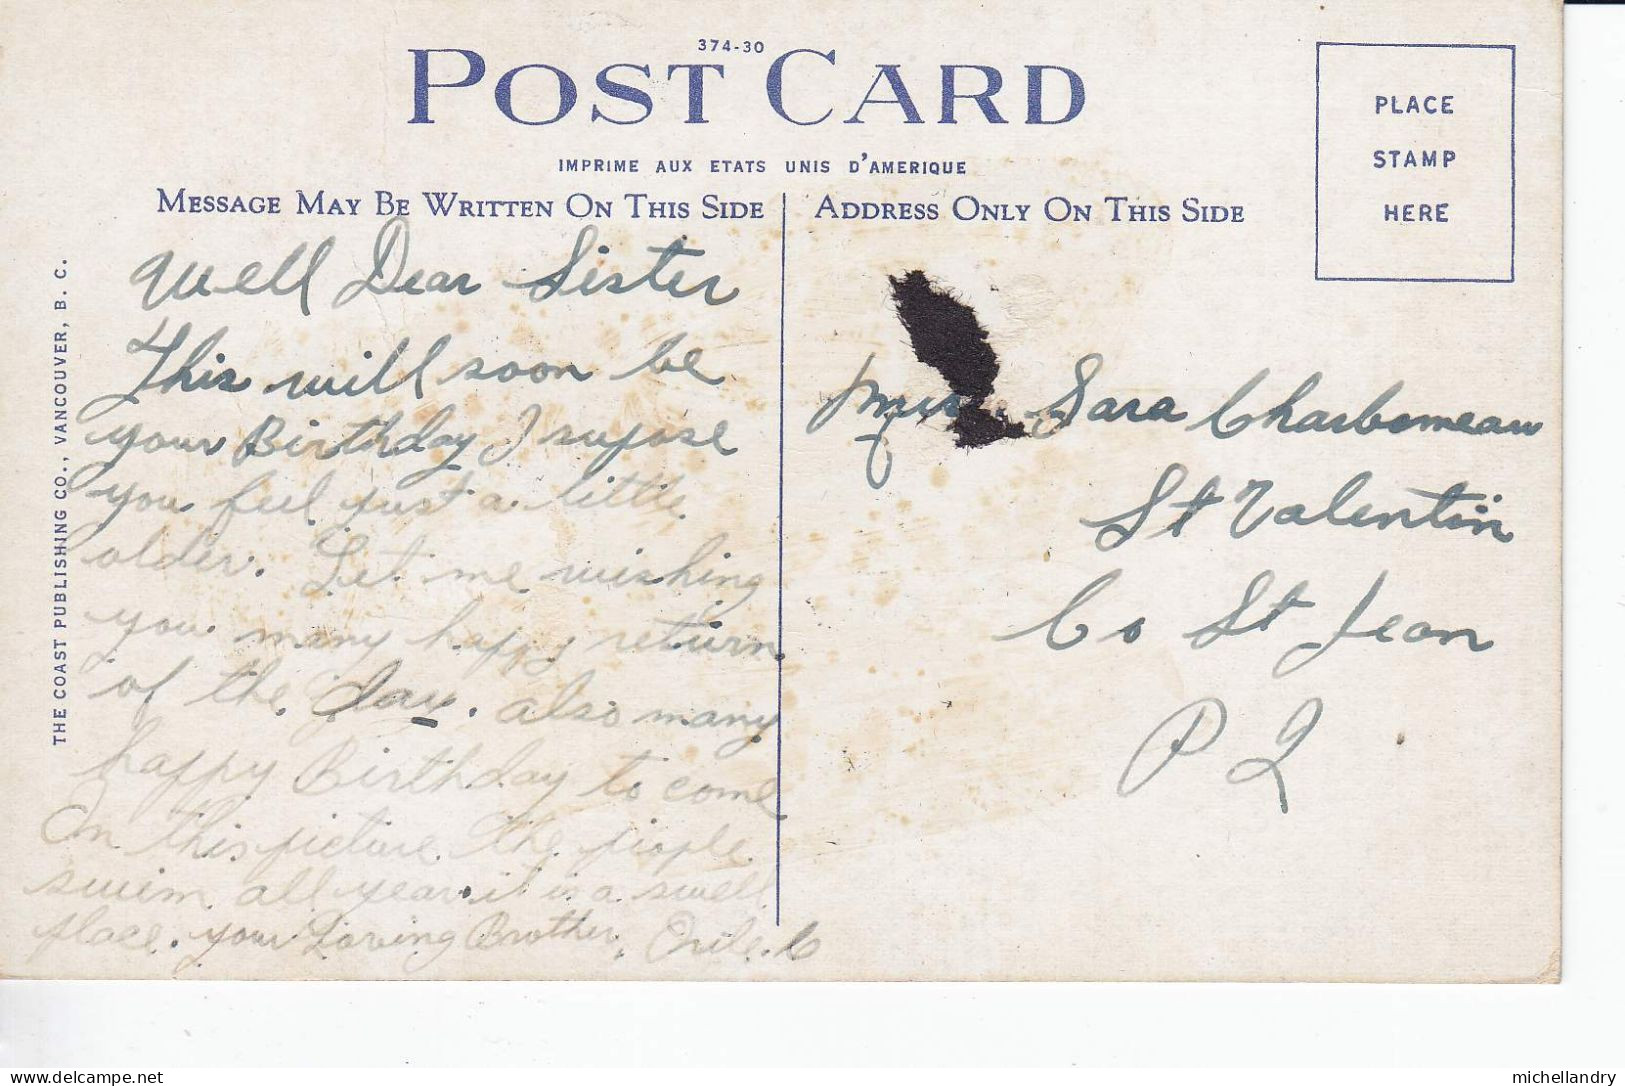 374-30
POST CARD
IMPRIME AUX ETATS UNIS D'AMERIQUE
MESSAGE MAY BE WRITTEN ON THIS SIDE
ADDRESS ONLY ON THIS SIDE
PLACE
STAMP
HERE
THE COAST PUBLISHING CO., VANCOUVER, B. C.
Well Dear Sister
This will soon be
your Birthday I supose
you feel just a little
older. Let me wishing
you many happy return
of the day. also many
happy Birthday to come
On this picture the people
swim all year it is a swell
place. your Loving Brother,
Sara Charbonneau
St Valentin
Co St Jean
P Q
delcampe.net
michellandry